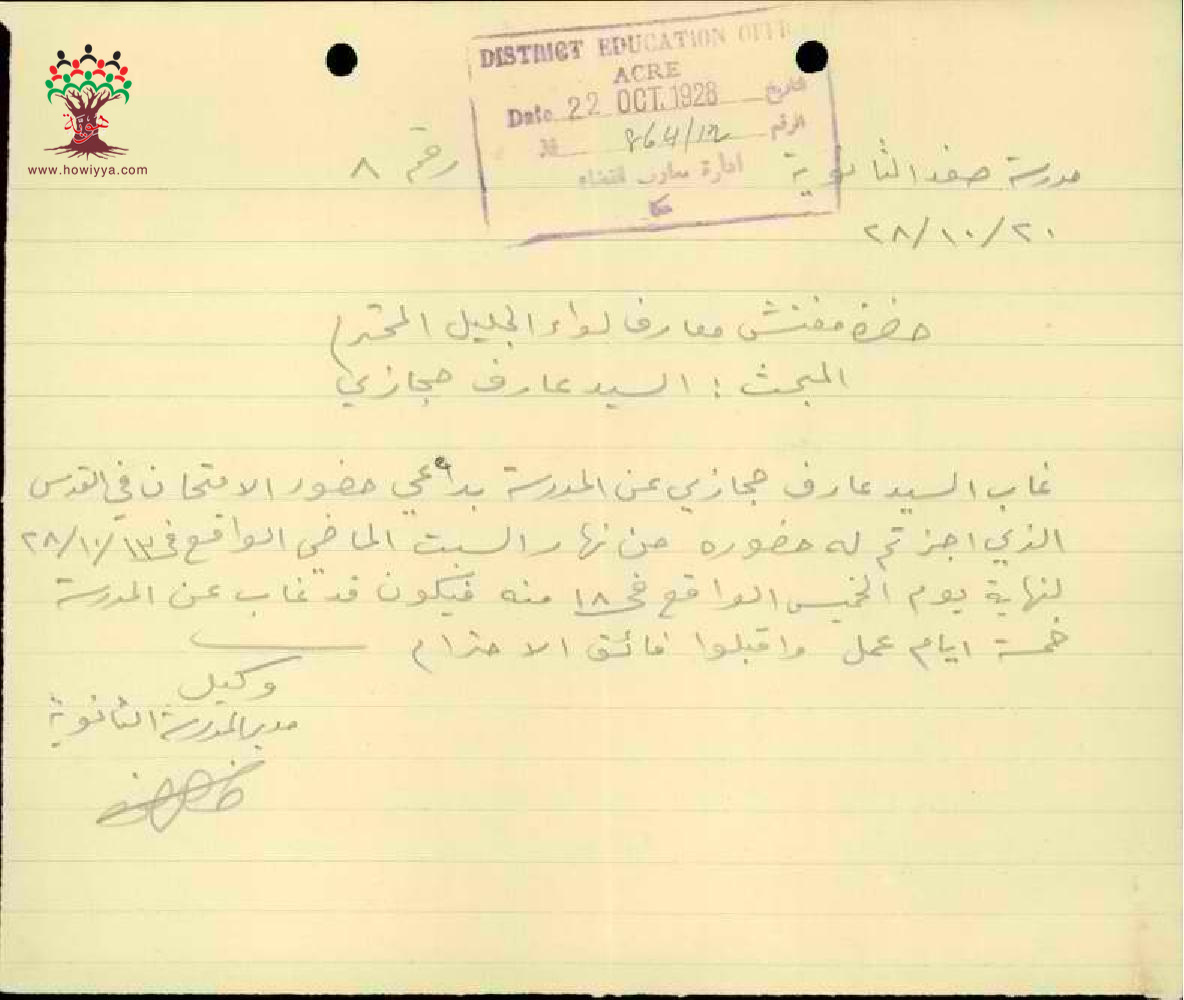 DISTRICT EDUCATION OFFI
ACRE
Date 22 OCT. 1928 تاريخ
No 864/12 الرقم
ادارة معارف القضاء
عكا
هوية
www.howiyya.com
مدرسة صفد الثانوية
رقم ٨
٢٨/١٠/٢٠
حضرة مفتش معارف لواء الجليل المحترم
المبحث : السيد عارف حجازي
غاب السيد عارف حجازي عن المدرسة بداعي حضور الامتحان في القدس
الذي اجزتم له حضوره من نهار السبت الماضي الواقع في ٢٨/١٠/١٣
لنهاية يوم الخميس الواقع في ١٨ منه فيكون قد غاب عن المدرسة
خمسة ايام عمل واقبلوا فائق الاحترام
وكيل
مدير المدرسة الثانوية